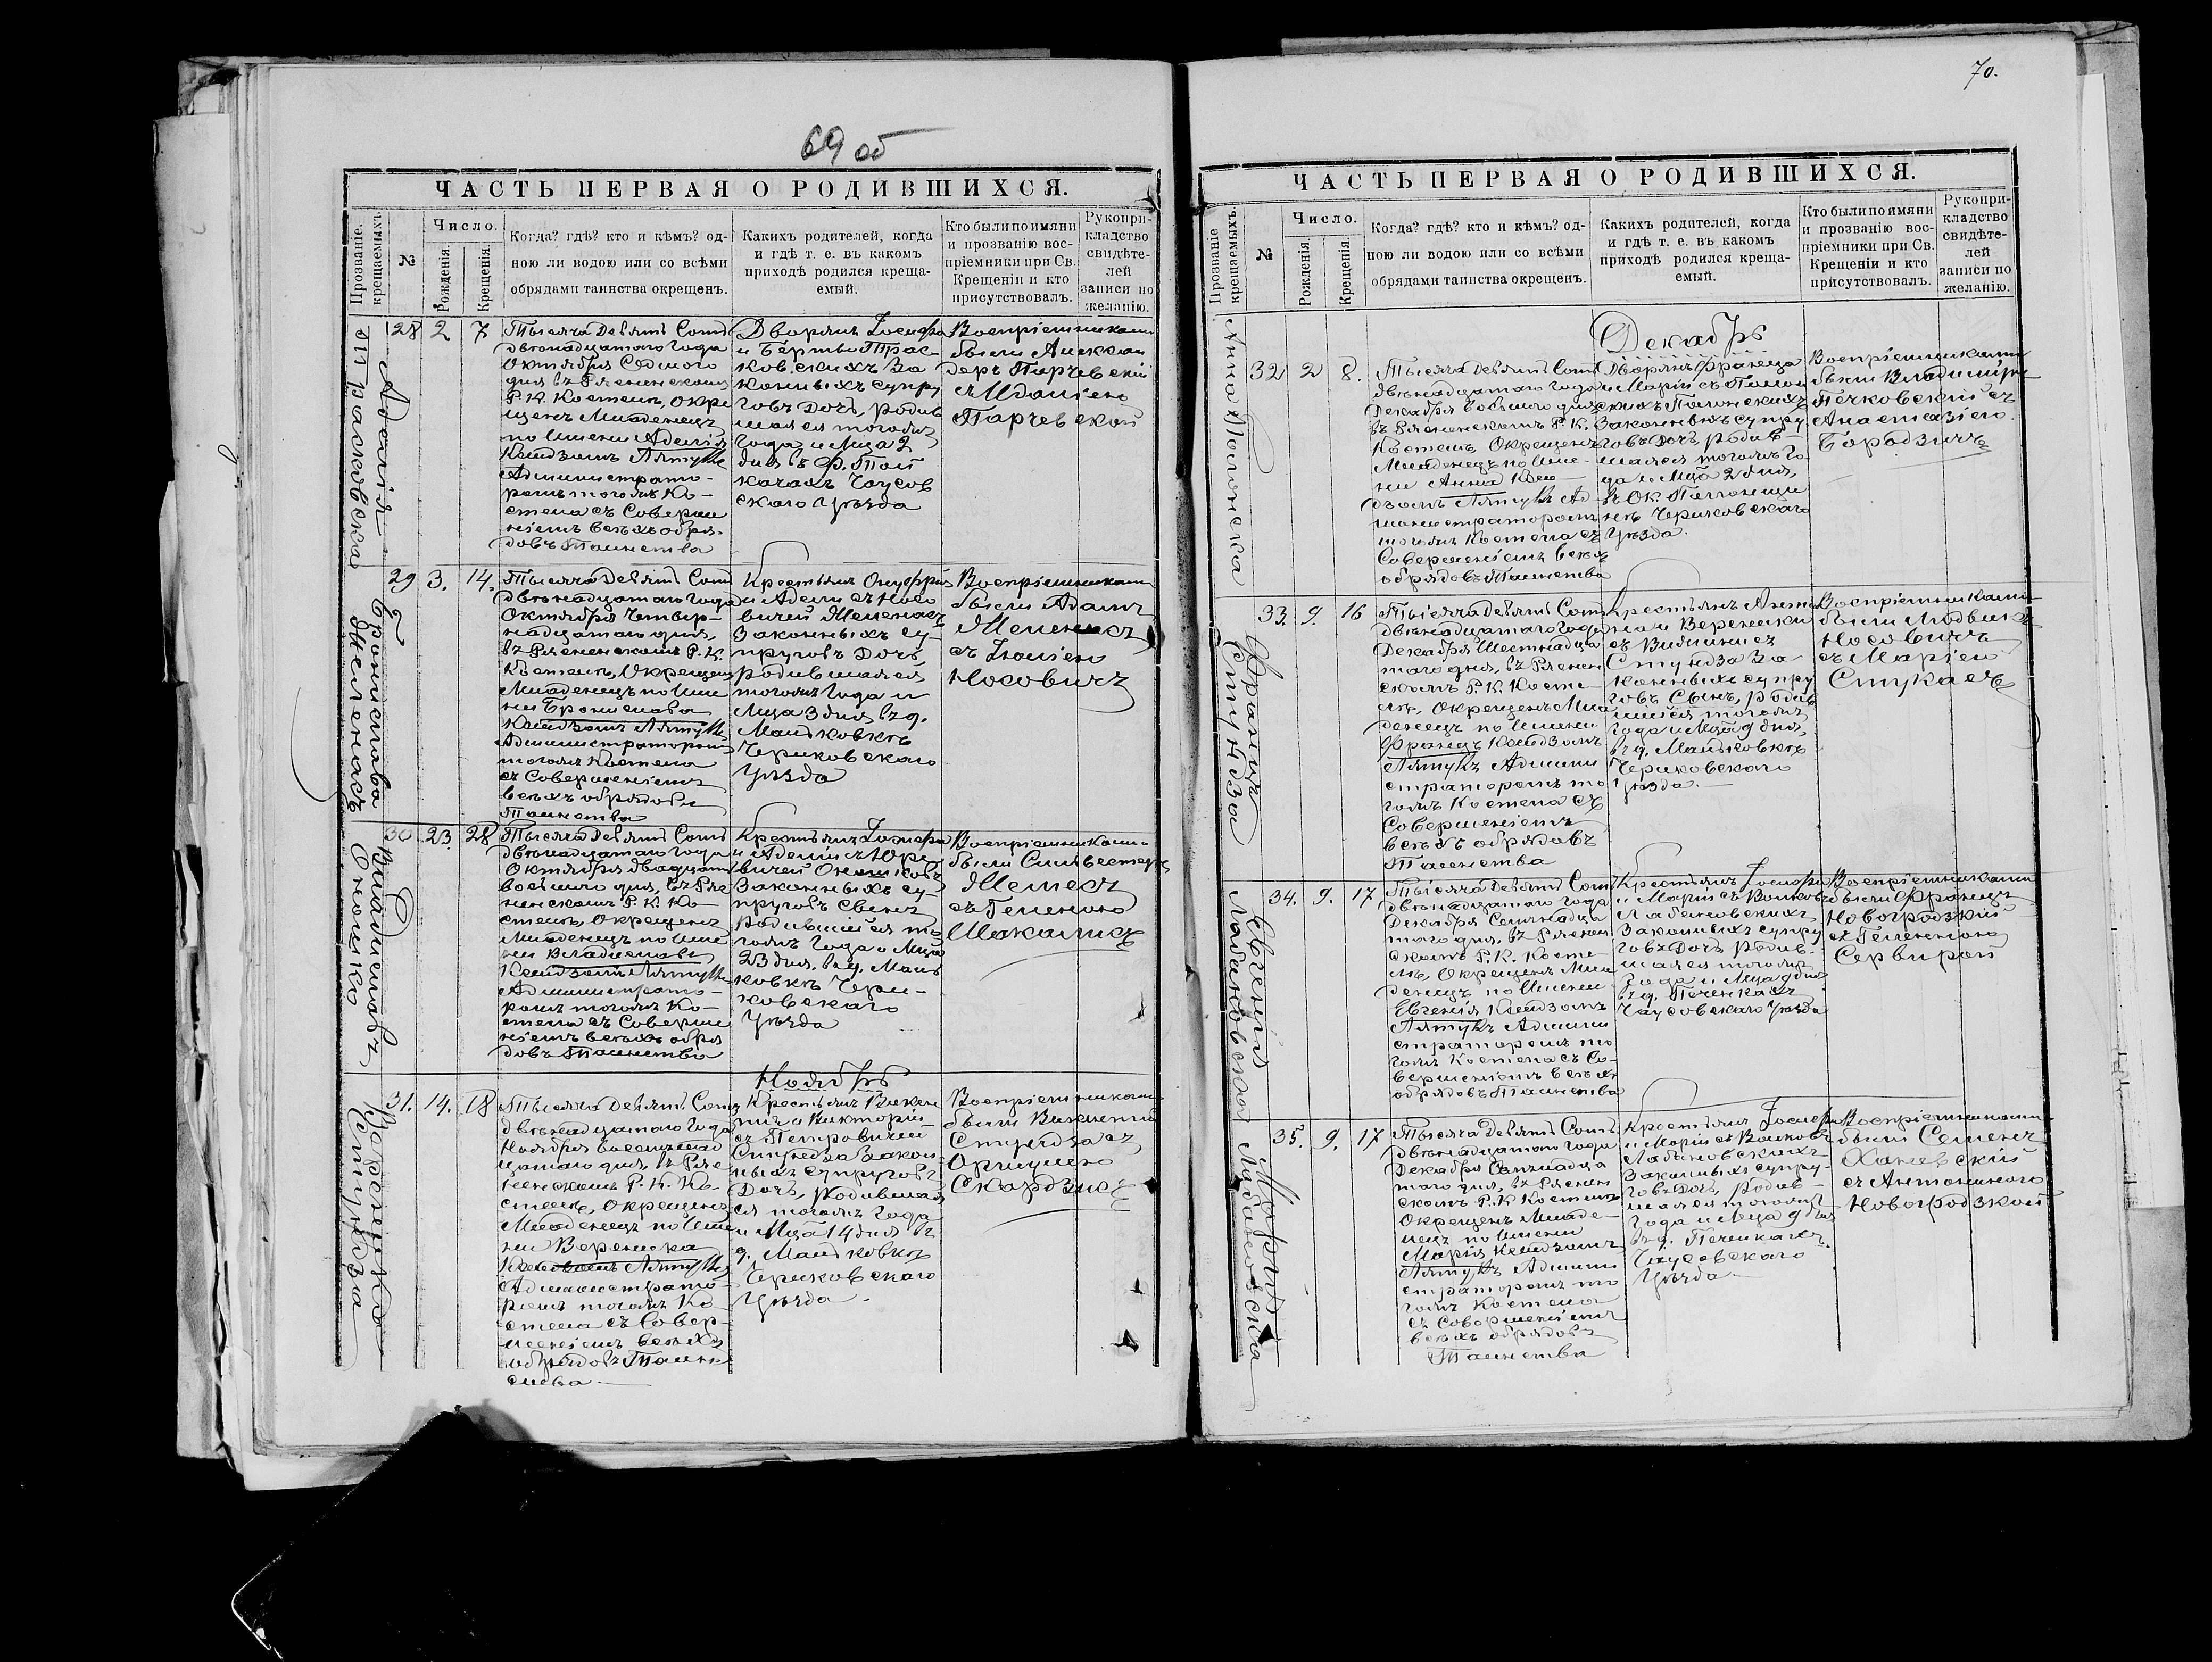 69 об
ЧАСТЬ ПЕРВАЯ О РОДИВШИХСЯ.
Прозваніе крещаемыхъ.
№
Число.
Рожденія.
Крещенія.
Когда? гдѣ? кто и кѣмъ? од-
ною ли водою или со всѣми
обрядами таинства окрещенъ.
Какихъ родителей, когда
и гдѣ т. е. въ какомъ
приходѣ родился креща-
емый.
Кто были по имяни
и прозванію вос-
пріемники при Св.
Крещеніи и кто
присутствовалъ.
Рукопри-
кладство
свидѣте-
лей
записи по
желанію.
Аделія
28 2 7
Тысяча девятьсотъ
двѣнадцатаго года
Октября Седмого
дня въ Рясненскомъ
Р. К. Костелѣ, окре
щенъ Младенецъ
по имени Аделія
Ксендзомъ
Администрато-
ромъ тогожъ Ко-
стела съ Соверше
ніемъ всѣхъ обря-
довъ Таинства
Дворянъ Іосифа
и Берты Трас-
ковскихъ За
конныхъ супру
говъ Дочь, родив
шаяся тогожъ
Года и Мца 2
дня въ
Чаусов
скаго Уѣзда
Воспріемниками
были Алексан
деръ Парчевскій
съ
Парчевской
Бронислава
29 3. 14.
Тысяча девятьсотъ
двѣнадцатаго года
Октября Четвер-
надцатаго дня,
въ Рясненскомъ Р. К.
Костелѣ, Окрещенъ
Младенецъ по Име
ни Бронислава
Ксендзомъ
Администраторомъ
тогожъ Костела
съ Совершеніемъ
всѣхъ обрядовъ
Таинства
Крестьянъ Онуфрія
и Адели съ Носо
вичей
Законныхъ Су-
пруговъ Дочь,
родившаяся
тогожъ Года и
Мца 3 дня въ д.
Маньковкѣ
Чериковскаго
Уѣзда
Воспріемниками
были Адамъ
съ Юліею
Носовичъ
Владиславъ
30 23. 28
Тысяча девятьсотъ
двѣнадцатаго года
Октября двадцать
восьмого дня, въ Ряс
ненскомъ Р. К. Ко-
стелѣ, Окрещенъ
Младенецъ по Име
ни Владиславъ
Ксендзомъ
Администрато-
ромъ тогожъ Ко-
стела съ Соверше
ніемъ всѣхъ обря
довъ Таинства
Крестьянъ Іосифа
и Аделіи съ Юре
вичей
Законныхъ Су-
пруговъ Сынъ
родившійся то
гожъ Года и Мца
23 дня, въ д. Мань
ковкѣ Чери-
ковскаго
Уѣзда
Воспріемниками
были Сильвестеръ
съ Геленою
Шакалисъ
Вероника
Стундза
Ноябрь
31. 14. 18
Тысяча девятьсотъ
двѣнадцатаго года
Ноября Восемнад
цатаго дня, въ Ряс
ненскомъ Р. К. Ко-
стелѣ, Окрещенъ
Младенецъ по Име
ни Вероника
Администрато-
ромъ тогожъ Ко-
стела съ Совер-
шеніемъ всѣхъ
обрядовъ Таин-
ства
Крестьянъ Викен
тія и Викторіи
съ Петровичей
Стундза Закон
ныхъ супруговъ
Дочь, родившая
ся тогожъ Года
и Мца 14 дня въ
д. Маньковкѣ
Чериковскаго
Уѣзда.
Воспріемниками
были Викентій
Стундза съ
70.
ЧАСТЬ ПЕРВАЯ О РОДИВШИХСЯ.
Прозваніе крещаемыхъ.
№
Число.
Рожденія.
Крещенія.
Когда? гдѣ? кто и кѣмъ? од-
ною ли водою или со всѣми
обрядами таинства окрещенъ.
Какихъ родителей, когда
и гдѣ т. е. въ какомъ
приходѣ родился креща-
емый.
Кто были по имяни
и прозванію вос-
пріемники при Св.
Крещеніи и кто
присутствовалъ.
Рукопри-
кладство
свидѣте-
лей
записи по
желанію.
Декабрь
Анна Полонска
32 2 8.
Тысяча девятьсотъ
двѣнадцатаго года
Декабря Восьмого дня
въ Рясненскомъ Р. К.
Костелѣ Окрещенъ
Младенецъ по Име-
ни Анна Ксен-
дзомъ Ад-
министраторомъ
тогожъ Костела съ
Совершеніемъ всѣхъ
обрядовъ Таинства
Дворянъ Франца
и Маріи съ Полон
скихъ Полонскихъ
Законныхъ супру
говъ Дочь, родив-
шаяся тогожъ Го-
да и Мца 2 дня,
въ Ок.
Чериковскаго
Уѣзда.
Воспріемниками
были Владиміръ
Печковскій съ
Анастазіею
Бородзичъ
Францъ
Стундза
33. 9. 16
Тысяча девятьсотъ
двѣнадцатаго года
Декабря Шестнадца
таго дня, въ Ряснен
скомъ Р. К. Косте-
лѣ, Окрещенъ Мла
денецъ по Имени
Францъ Ксендзомъ
Админи
страторомъ то
гожъ Костела съ
Совершеніемъ
всѣхъ обрядовъ
Таинства
Крестьянъ Анто
на и Вероники
Стундза За-
конныхъ супру
говъ Сынъ, родив
шійся тогожъ
Года и Мца 9 дня,
въ д. Маньковкѣ
Чериковскаго
Уѣзда.
Воспріемниками
были Людвикъ
Носовичъ
съ Маріею
Евгенія
Лабановска
34. 9. 17
Тысяча девятьсотъ
двѣнадцатаго года
Декабря Семнадца
таго дня, въ Ряснен
скомъ Р. К. Косте-
лѣ, Окрещенъ Мла
денецъ по Имени
Евгенія Ксендзомъ
Админи
страторомъ то
гожъ Костела съ Со-
вершеніемъ всѣхъ
обрядовъ Таинства
Крестьянъ Іосифа
и Маріи съ Волковъ
Лабановскихъ
Законныхъ супру
говъ Дочь родив-
шаяся тогожъ
Года и Мца 9 дня
въ д. Печенкахъ
Чаусовскаго Уѣзда
Воспріемниками
были Францъ
Новогродзкій
съ Геленою
Марія
Лабановска
35. 9. 17
Тысяча девятьсотъ
двѣнадцатаго года
Декабря Семнадца
таго дня, въ Ряснен
скомъ Р. К. Костелѣ
Окрещенъ Младе-
нецъ по Имени
Марія Ксендзомъ
Админи
страторомъ то
гожъ Костела
съ Совершеніемъ
всѣхъ обрядовъ
Таинства
Крестьянъ Іосифа
и Маріи съ Волковъ
Лабановскихъ
Законныхъ супру-
говъ Дочь, родив-
шаяся тогожъ
Года и Мца 9 дня
въ д. Печенкахъ
Чаусовскаго
Уѣзда
Воспріемниками
были Семенъ
Ханевскій
съ Антониною
Новогродзкой